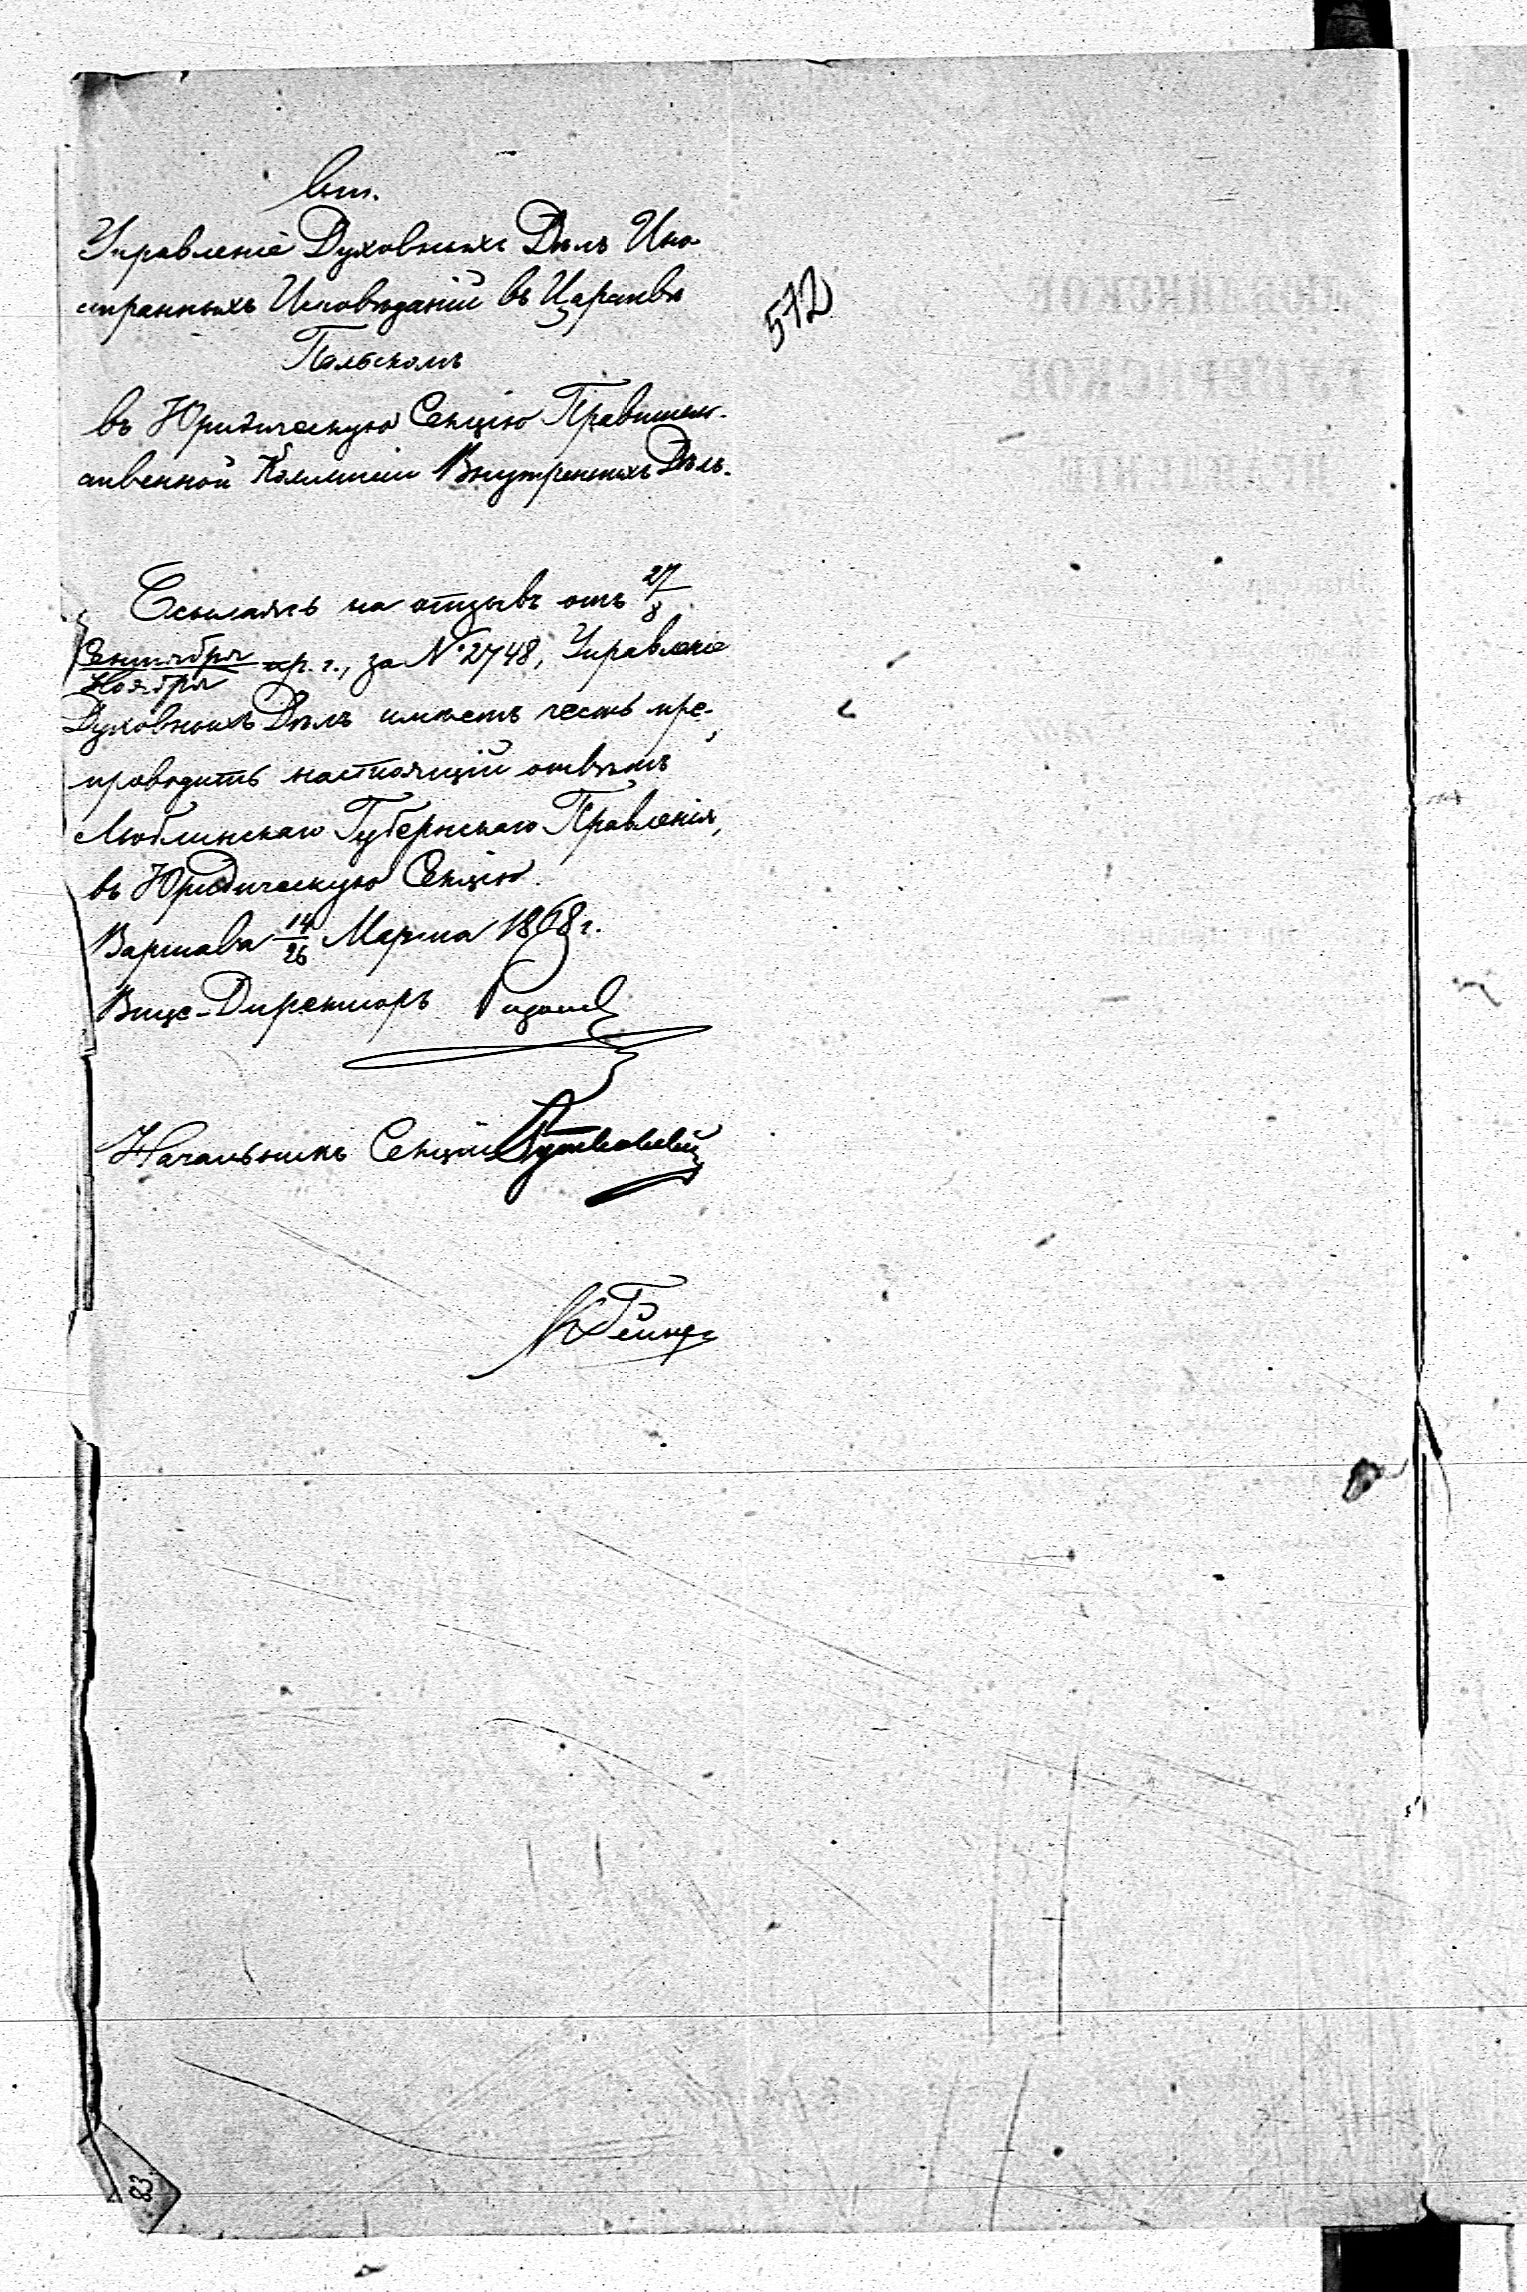 Управленіе Духовныхъ Дѣлъ Ино
странныхъ Исповѣданій въ Царствѣ
Польскомъ
572
въ Юридическую Секцію Правитель-
ственной Коммисіи Внутреннихъ Дѣлъ.
Ссылаясь на отзывъ отъ 27/8
Сентября/Ноября пр. г., за № 2748, Управленіе
Духовныхъ Дѣлъ имѣетъ честь пре-
проводить настоящій отвѣтъ
Люблинскаго Губернскаго Правленія,
въ Юридическую Секцію.
Варшава 14/26 Марта 1868 г.
Вице-Директоръ
Начальникъ Секціи
83